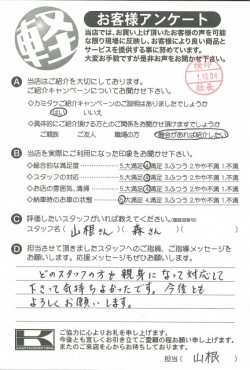 軽
お客様アンケート
当店では、お買い上げ頂いたお客様の声を可能
な限り現場に反映し、お客様により良い商品と
サービスを提供する事に努めています。
大変お手数ですが是非お声をお聞かせ下さい。
1.10.04
社長
A 当店はご紹介を大切にしております。
ご紹介キャンペーンについてお聞かせ下さい。
・カミタケご紹介キャンペーンのご説明はありましたでしょうか
はい いいえ
・具体的にご紹介頂けるご関係をお聞かせ頂けますでしょうか
ご親族 ご友人 職場の方 機会があれば紹介したい
B 当店を実際にご利用になった印象をお聞かせ下さい。
・総合的な満足度 5.大満足 4.満足 3.ふつう 2.やや不満 1.不満
・スタッフの対応 5.大満足 4.満足 3.ふつう 2.やや不満 1.不満
・お店の雰囲気、清掃 5.大満足 4.満足 3.ふつう 2.やや不満 1.不満
・納車時のお車の状態 5.大満足 4.満足 3.ふつう 2.やや不満 1.不満
C 評価したいスタッフがいれば教えてください。
スタッフ名( 山根さん )( 森さん )
D 担当させて頂きましたスタッフへのご指摘、ご指導メッセージを
お願いします。応援メッセージもぜひお願いします。
どのスタッフの方も親身になって対応して
下さって気持ちよかったです。今後とも
よろしくお願いします。
K
ご協力に心よりお礼を申し上げます。
今後とも宜しくお引き立てご愛顧の程お願い申し上げます。
またのご来店を心からお待ちしております。
担当( 山根 )